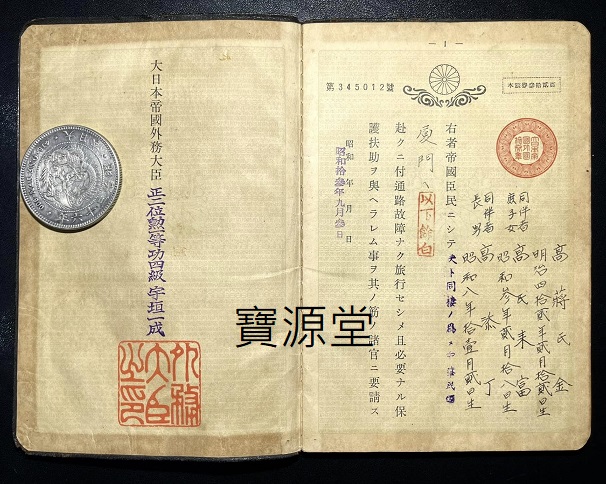 — 1 —
第345012號
高蔣氏金
明治四拾貳年貳月拾貳日生
同伴者
庶子女
高氏来富
昭和參年貳月拾八日生
同伴者
長男
高添丁
昭和八年拾壹月貳日生
右者帝國臣民ニシテ夫ト同棲ノ爲メ
厦門ヘ
以下餘白
赴クニ付通路故障ナク旅行セシメ且必要ナル保
護扶助ヲ與ヘラレム事ヲ其ノ筋ノ諸官ニ要請ス
昭和 年 月 日
昭和拾參年九月參日
大日本帝國外務大臣 正三位勲一等功四級 宇垣一成
外務大臣之印
寶源堂